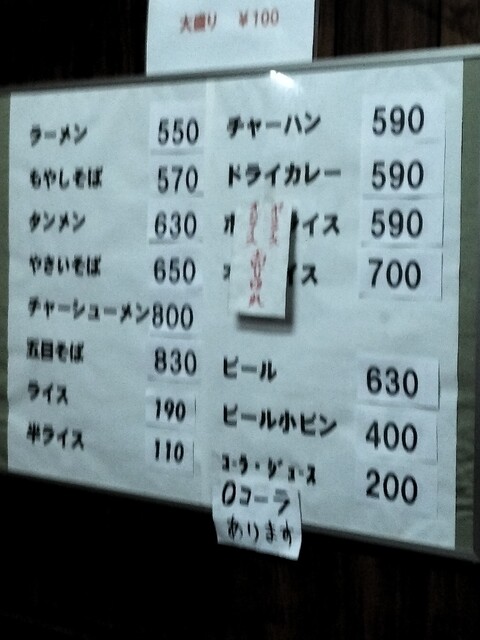 大盛り ¥100
ラーメン 550
もやしそば 570
タンメン 630
やきいそば 650
チャーシューメン 800
五目そば 830
ライス 190
半ライス 110
チャーハン 590
ドライカレー 590
イス 590
イス 700
ビール 630
ビール小ビン 400
コーラ・ジュース 200
0コーラ
あります